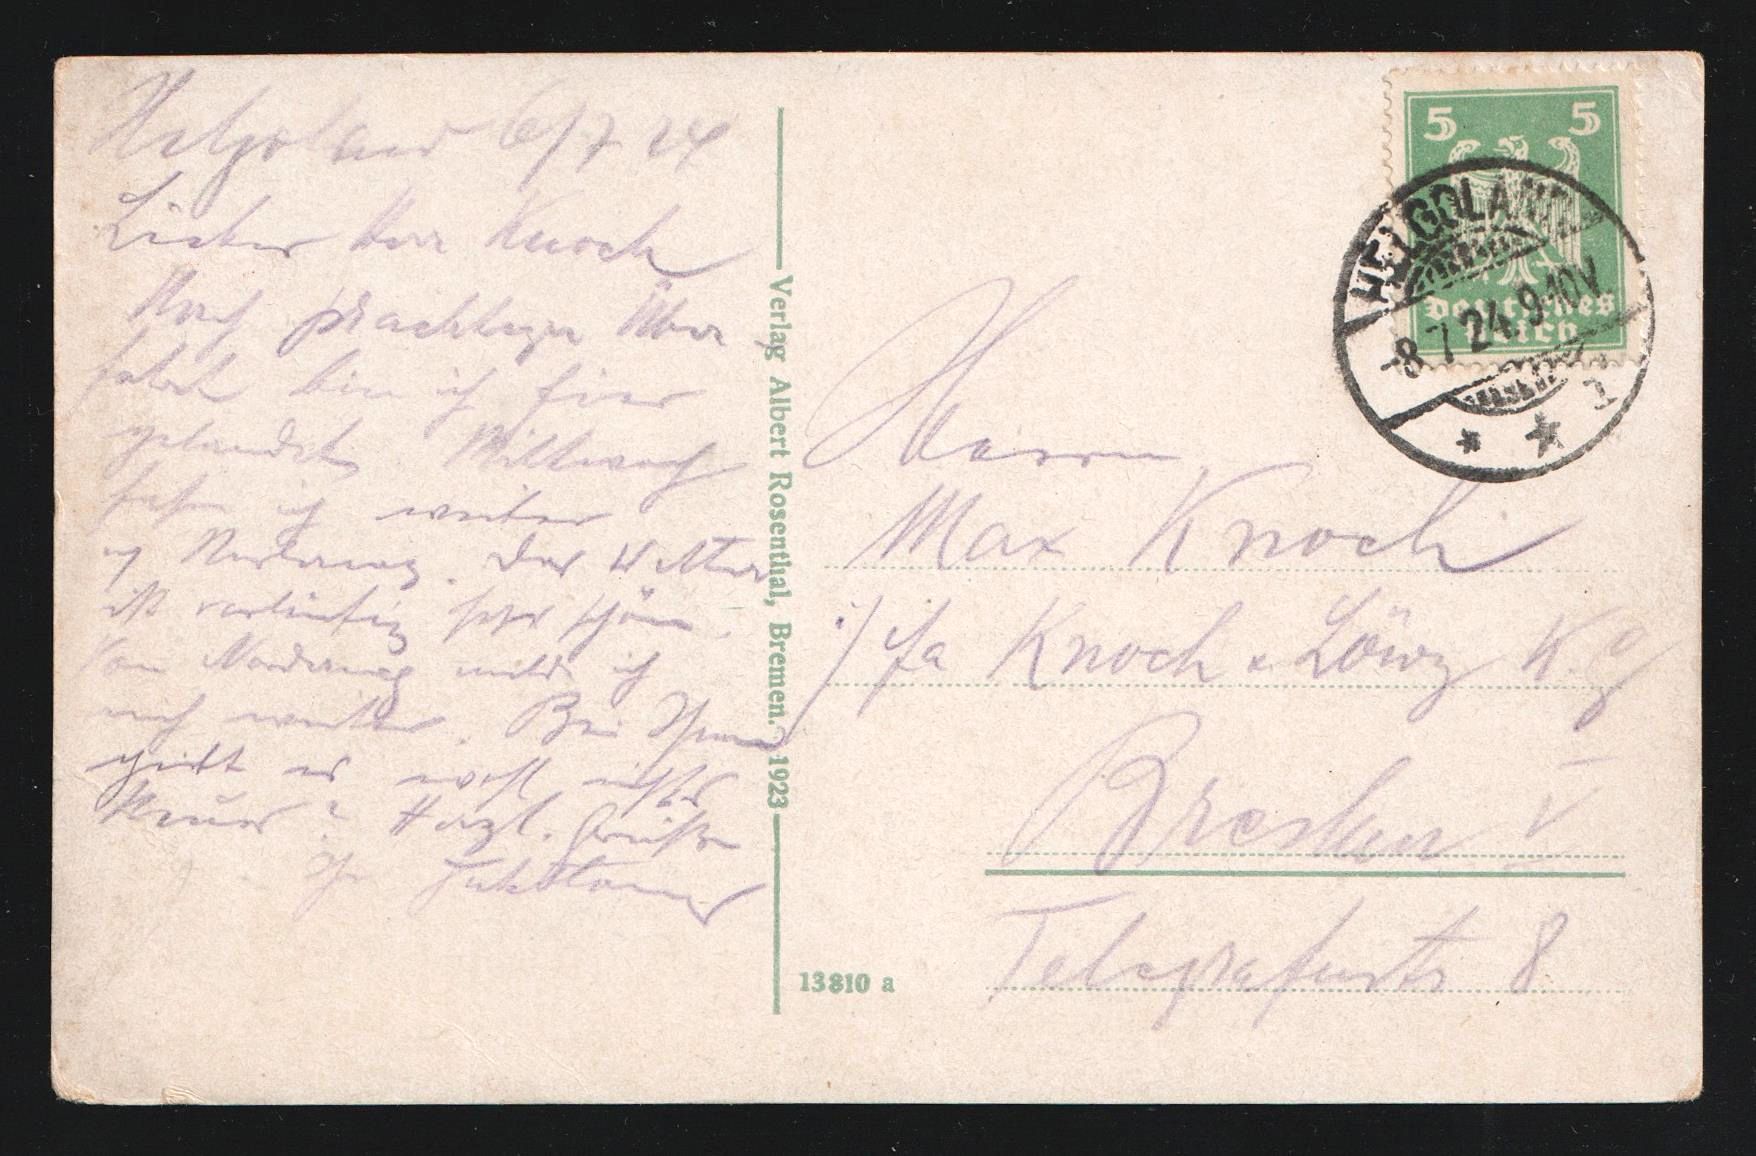 Helgoland 6/7 24
Lieber Herr Knoch
Nach prachtvoller Über
fahrt bin ich hier
gelandet. Mittwoch
fahre ich weiter
n. Norderney. Das Wetter
ist vorläufig sehr schön.
Von Norderney melde ich
mich weiter. Bei Ihnen
gibt es wohl nichts
Neues? Herzl. Grüße
Ihr
Verlag Albert Rosenthal, Bremen. 1923
13810 a
5 5
Deutsches
Reich
HELGOLAND
-8.7.24.9-10V.
* * 1
Herrn
Max Knoch
i/ fa Knoch & Löwy K.G
Breslau V
Telegrafenstr 8